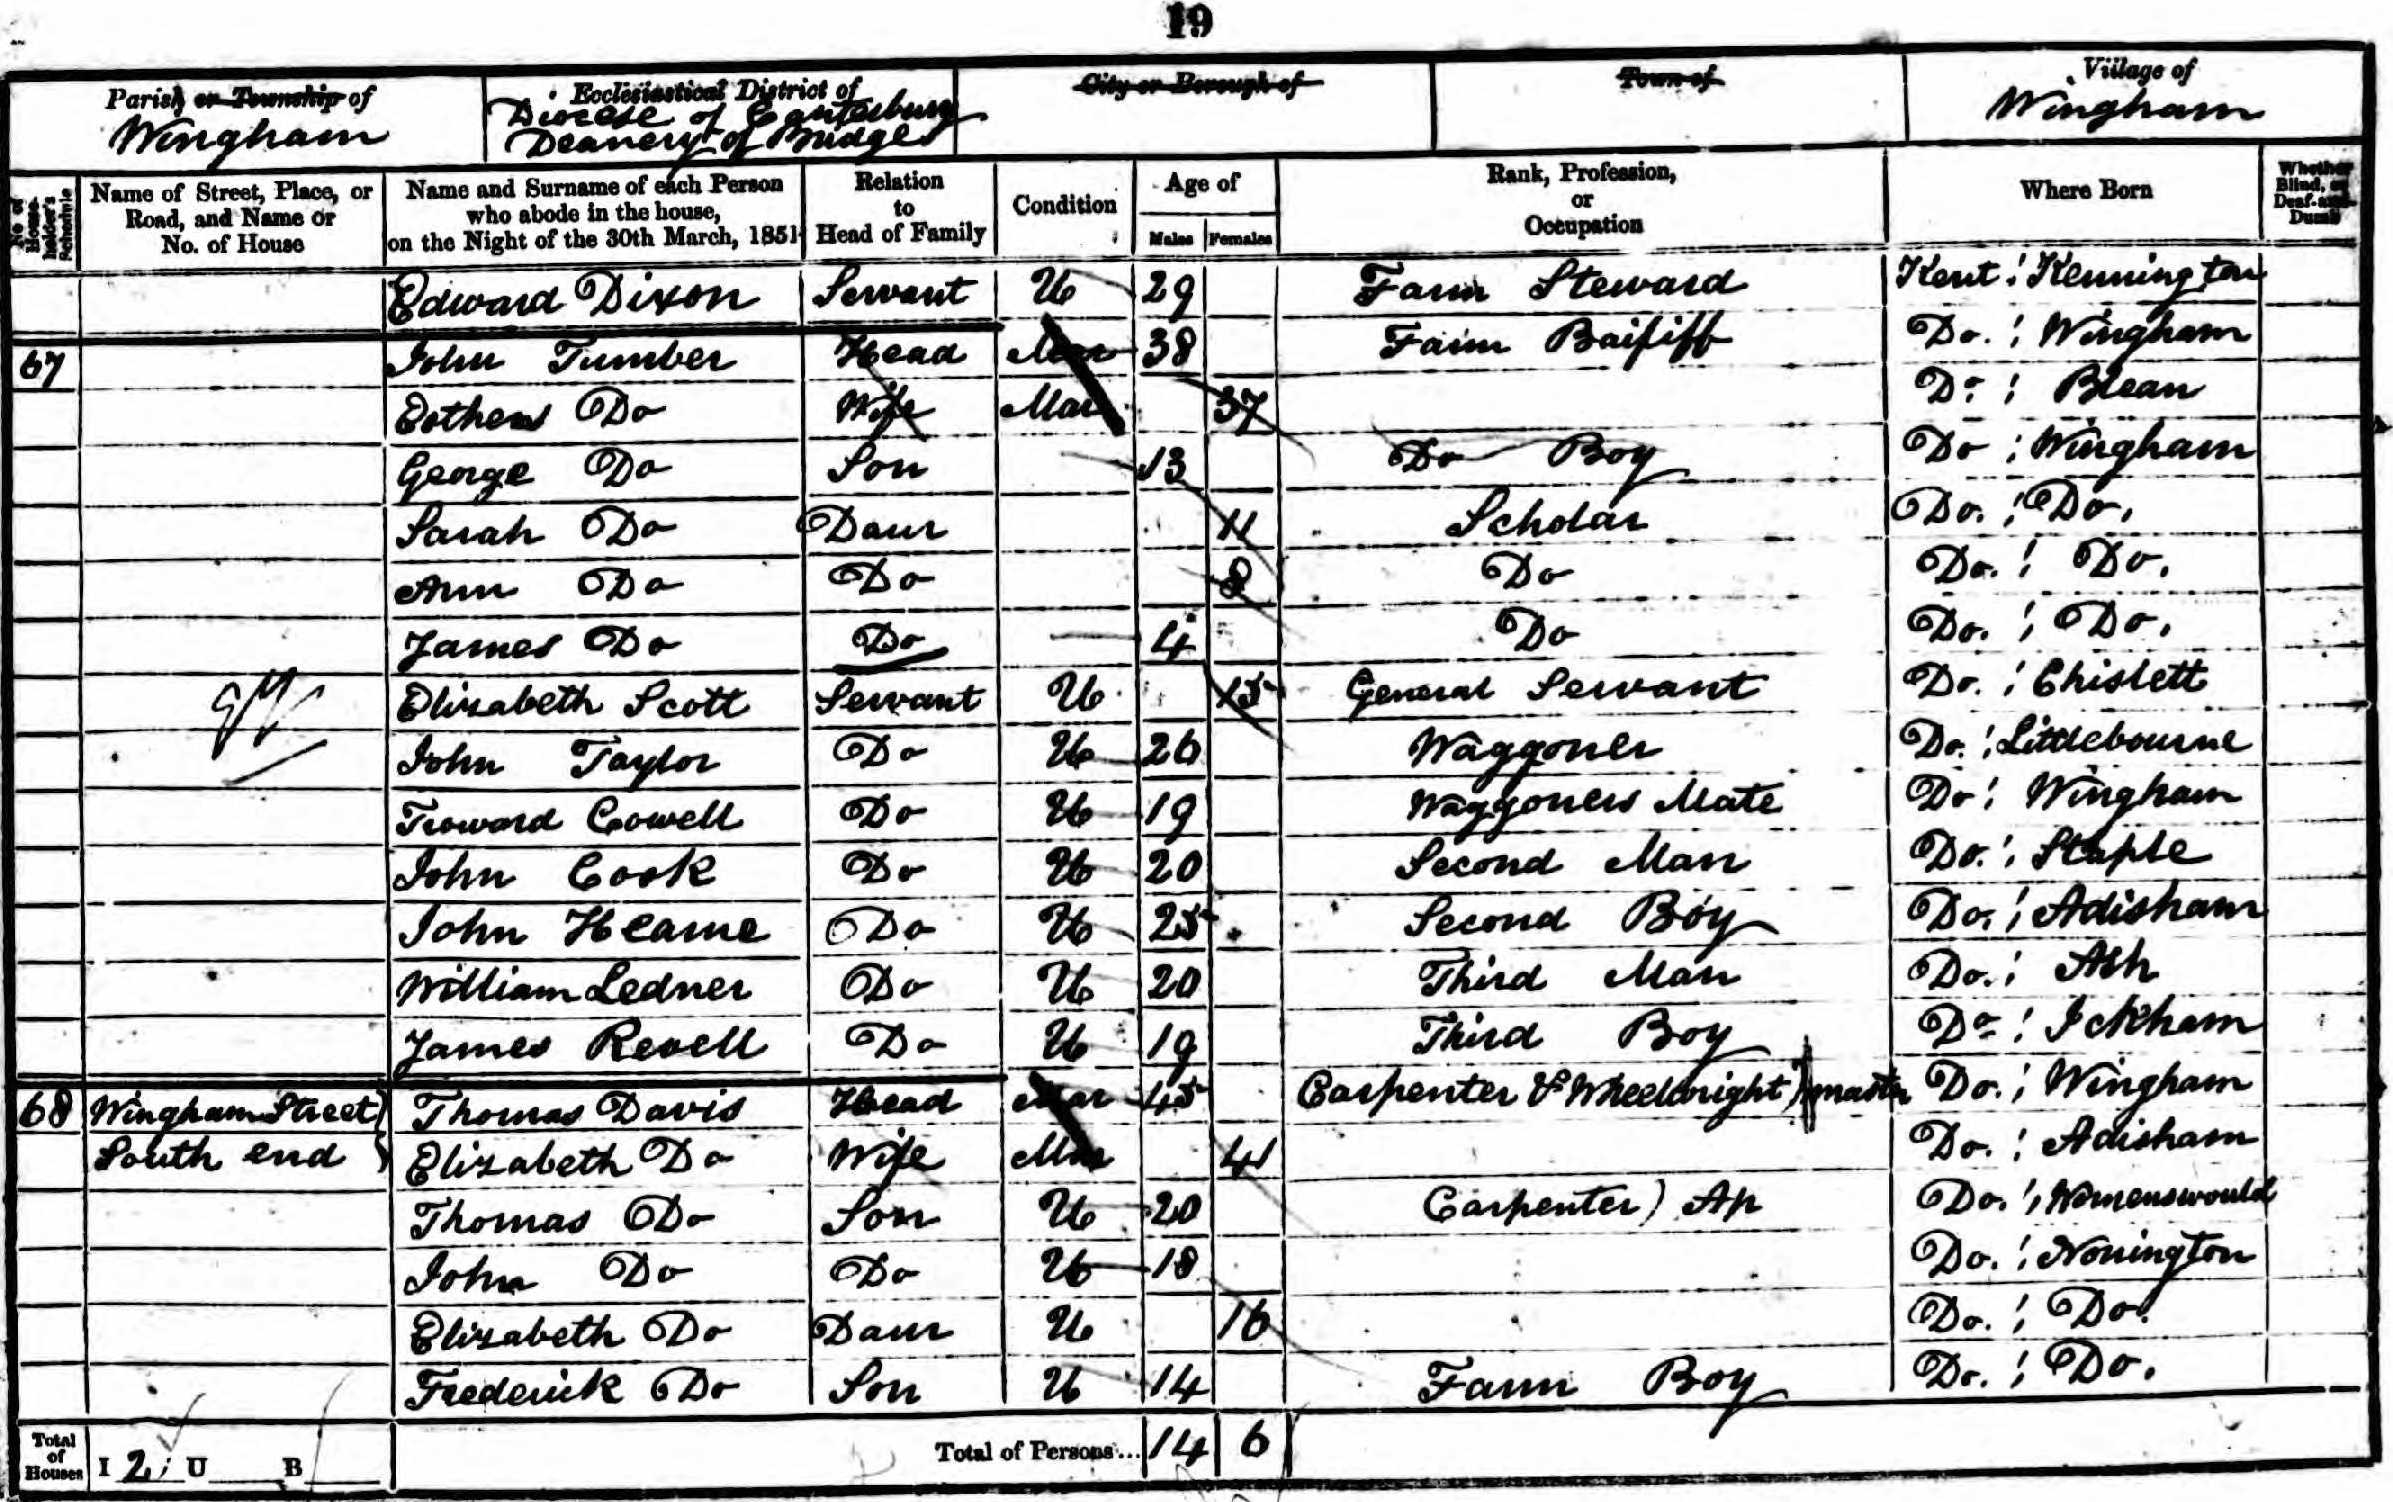 19
Parish or Township of Wingham
Ecclesiastical District of
Diocese of Canterbury
Deanery of Bridge
City or Borough of
Town of
Village of Wingham
No. of House-holder's Schedule | Name of Street, Place, or Road, and Name or No. of House | Name and Surname of each Person who abode in the house, on the Night of the 30th March, 1851 | Relation to Head of Family | Condition | Age of Males Females | Rank, Profession, or Occupation | Where Born | Whether Blind, or Deaf-and-Dumb
Edward Dixon Servant U 29 Farm Steward Kent Kennington
67 John Tumber Head Mar 38 Farm Baififf Do. Wingham
Esther Do Wife Mar 37 Do. Blean
George Do Son 13 Do Boy Do Wingham
Sarah Do Daur 11 Scholar Do. Do.
Ann Do Do 8 Do Do. Do.
James Do Do 4 Do Do. Do.
Elizabeth Scott Servant U 15 General Servant Do. Chislett
John Taylor Do U 26 Waggoner Do. Littlebourne
Troward Cowell Do U 19 Waggoners Mate Do Wingham
John Cook Do U 20 Second Man Do. Staple
John Hearne Do U 25 Second Boy Do. Adisham
William Ledner Do U 20 Third Man Do. Ash
James Revell Do U 19 Third Boy Do Ickham
68 Wingham Street Thomas Davis Head Mar 45 Carpenter & Wheelwright master Do. Wingham
South end Elizabeth Do Wife Mar 41 Do. Adisham
Thomas Do Son U 20 Carpenter) Ap Do. Womenswould
John Do Do U 18 Do. Nonington
Elizabeth Do Daur U 16 Do. Do.
Frederick Do Son U 14 Farm Boy Do. Do.
Total of Houses I 2 U B Total of Persons... 14 6